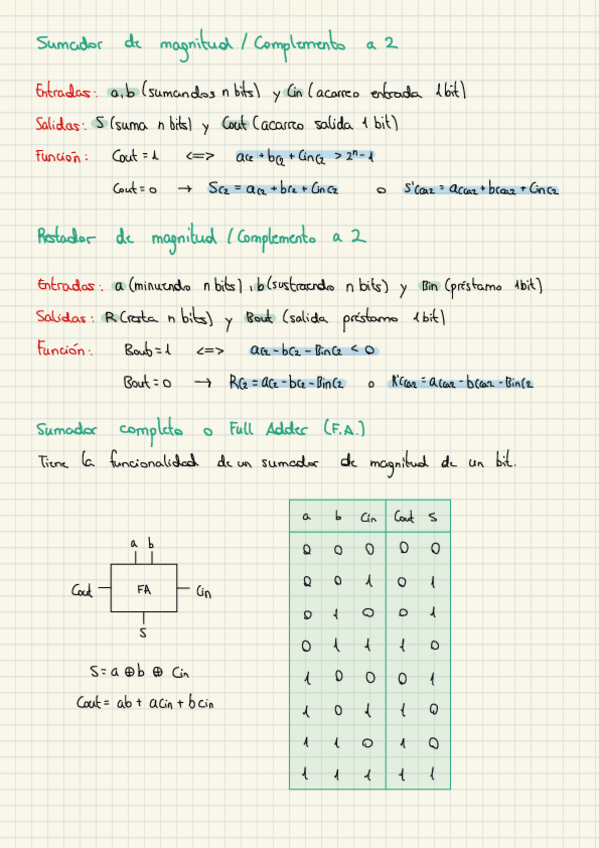 Sumador de magnitud / Complemento a 2
Entradas: a,b (sumandos n bits) y Cin (acarreo entrada 1 bit)
Salidas: S (suma n bits) y Cout (acarreo salida 1 bit)
Función: Cout = 1 <=> a(2 + b(2 + Cin(2 > 2ⁿ - 1
Cout = 0 → S(2 = a(2 + b(2 + Cin(2 o S'(Ca2 = a(Ca2 + b(Ca2 + Cin(2
Restador de magnitud / Complemento a 2
Entradas: a (minuendo n bits), b (sustraendo n bits) y Bin (préstamo 1bit)
Salidas: R (resta n bits) y Bout (salida préstamo 1 bit)
Función: Bout = 1 <=> a(2 - b(2 - Bin(2 < 0
Bout = 0 → R(2 = a(2 - b(2 - Bin(2 o R'(Ca2 = a(Ca2 - b(Ca2 - Bin(2
Sumador completo o Full Adder (F.A.)
Tiene la funcionalidad de un sumador de magnitud de un bit.
a b
Cout FA Cin
S
S = a ⊕ b ⊕ Cin
Cout = ab + acin + bcin
a b Cin Cout S
0 0 0 0 0
0 0 1 0 1
0 1 0 0 1
0 1 1 1 0
1 0 0 0 1
1 0 1 1 0
1 1 0 1 0
1 1 1 1 1